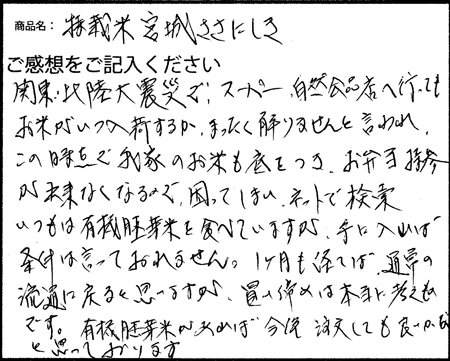 商品名: 特栽米宮城ささにしき
ご感想をご記入ください
関東・北陸大震災で、スーパー、自然食品店へ行っても
お米がいつ入荷するか、まったく解りませんと言われ、
この時点で我家のお米も底をつき、お弁当持参
が出来なくなるので、困ってしまい、ネットで検索
いつもは有機胚芽米を食べていますが、手に入れば
条件は言っておれません。1ヶ月も経てば、通常の
流通に戻ると思いますが、買い締めは本当に考えもの
です。有機胚芽米があれば今後注文しても良いかな
と思っております